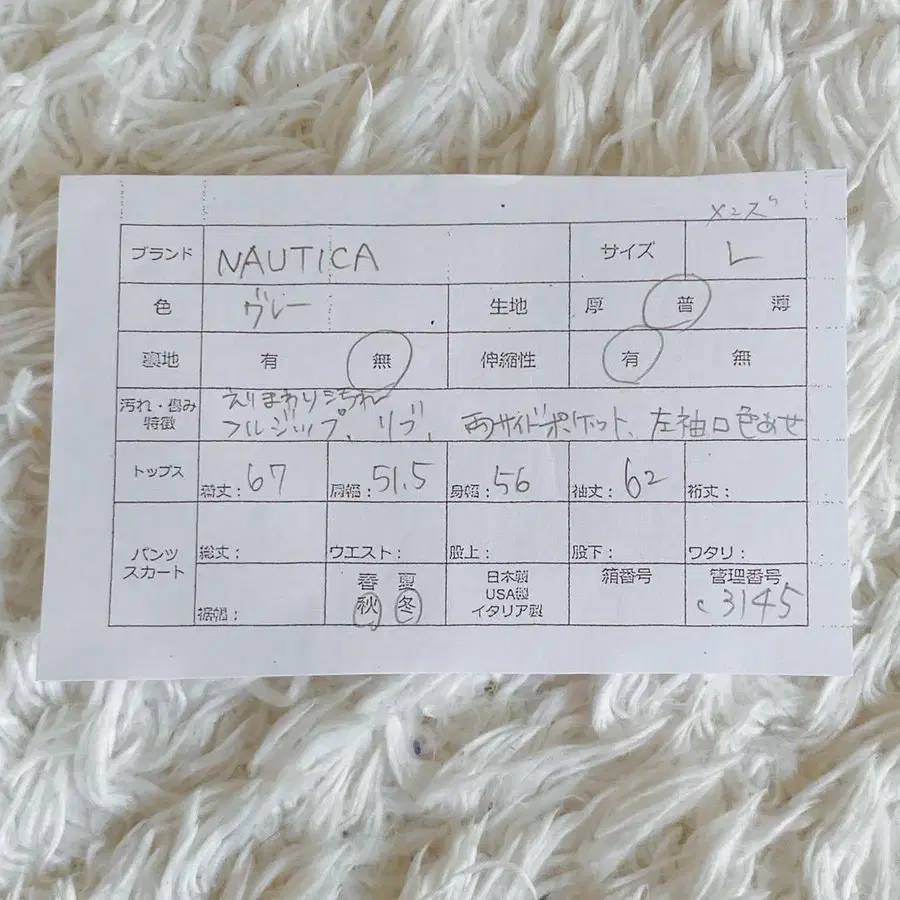 メンズ
ブランド NAUTICA サイズ L
色 グレー 生地 厚 普 薄
裏地 有 無 伸縮性 有 無
汚れ・傷み
特徴
えりまわり汚れ
フルジップ、リブ、両サイドポケット、左袖口色あせ
トップス 着丈:67 肩幅:51.5 身幅:56 袖丈:62 裄丈:
パンツ
スカート
総丈: ウエスト: 股上: 股下: ワタリ:
裾幅:
春 夏
秋 冬
日本製
USA製
イタリア製
箱番号
管理番号
c3145